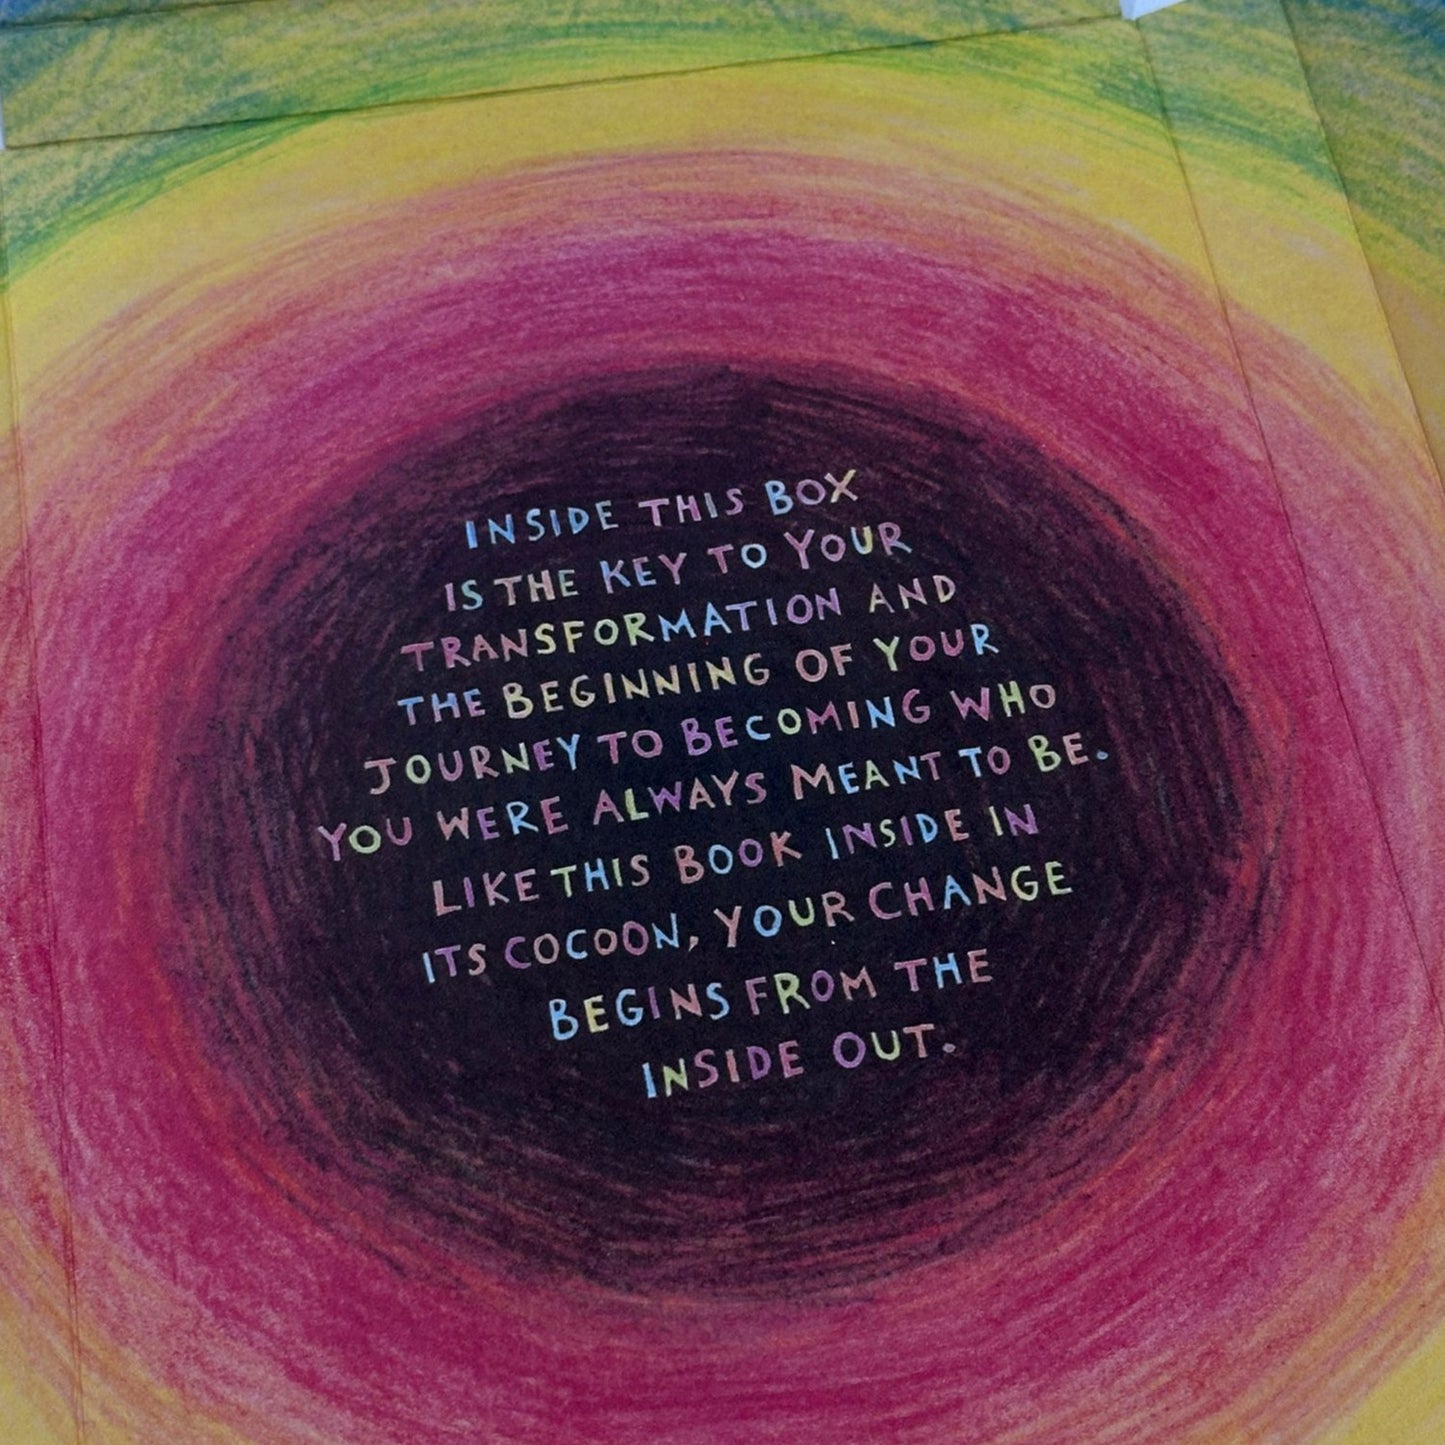 INSIDE THIS BOX
IS THE KEY TO YOUR
TRANSFORMATION AND
THE BEGINNING OF YOUR
JOURNEY TO BECOMING WHO
YOU WERE ALWAYS MEANT TO BE.
LIKE THIS BOOK INSIDE IN
ITS COCOON, YOUR CHANGE
BEGINS FROM THE
INSIDE OUT.